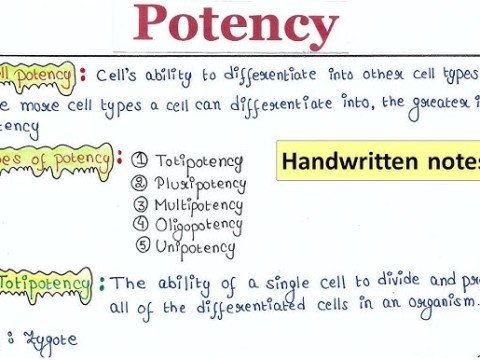 Potency
ll potency : Cell's ability to differentiate into other cell types
e more cell types a cell can differentiate into, the greater i
tency
pes of potency :
① Totipotency
② Pluripotency
③ Multipotency
④ Oligopotency
⑤ Unipotency
Handwritten notes
Totipotency : The ability of a single cell to divide and pr
all of the differentiated cells in an organism.
: Zygote